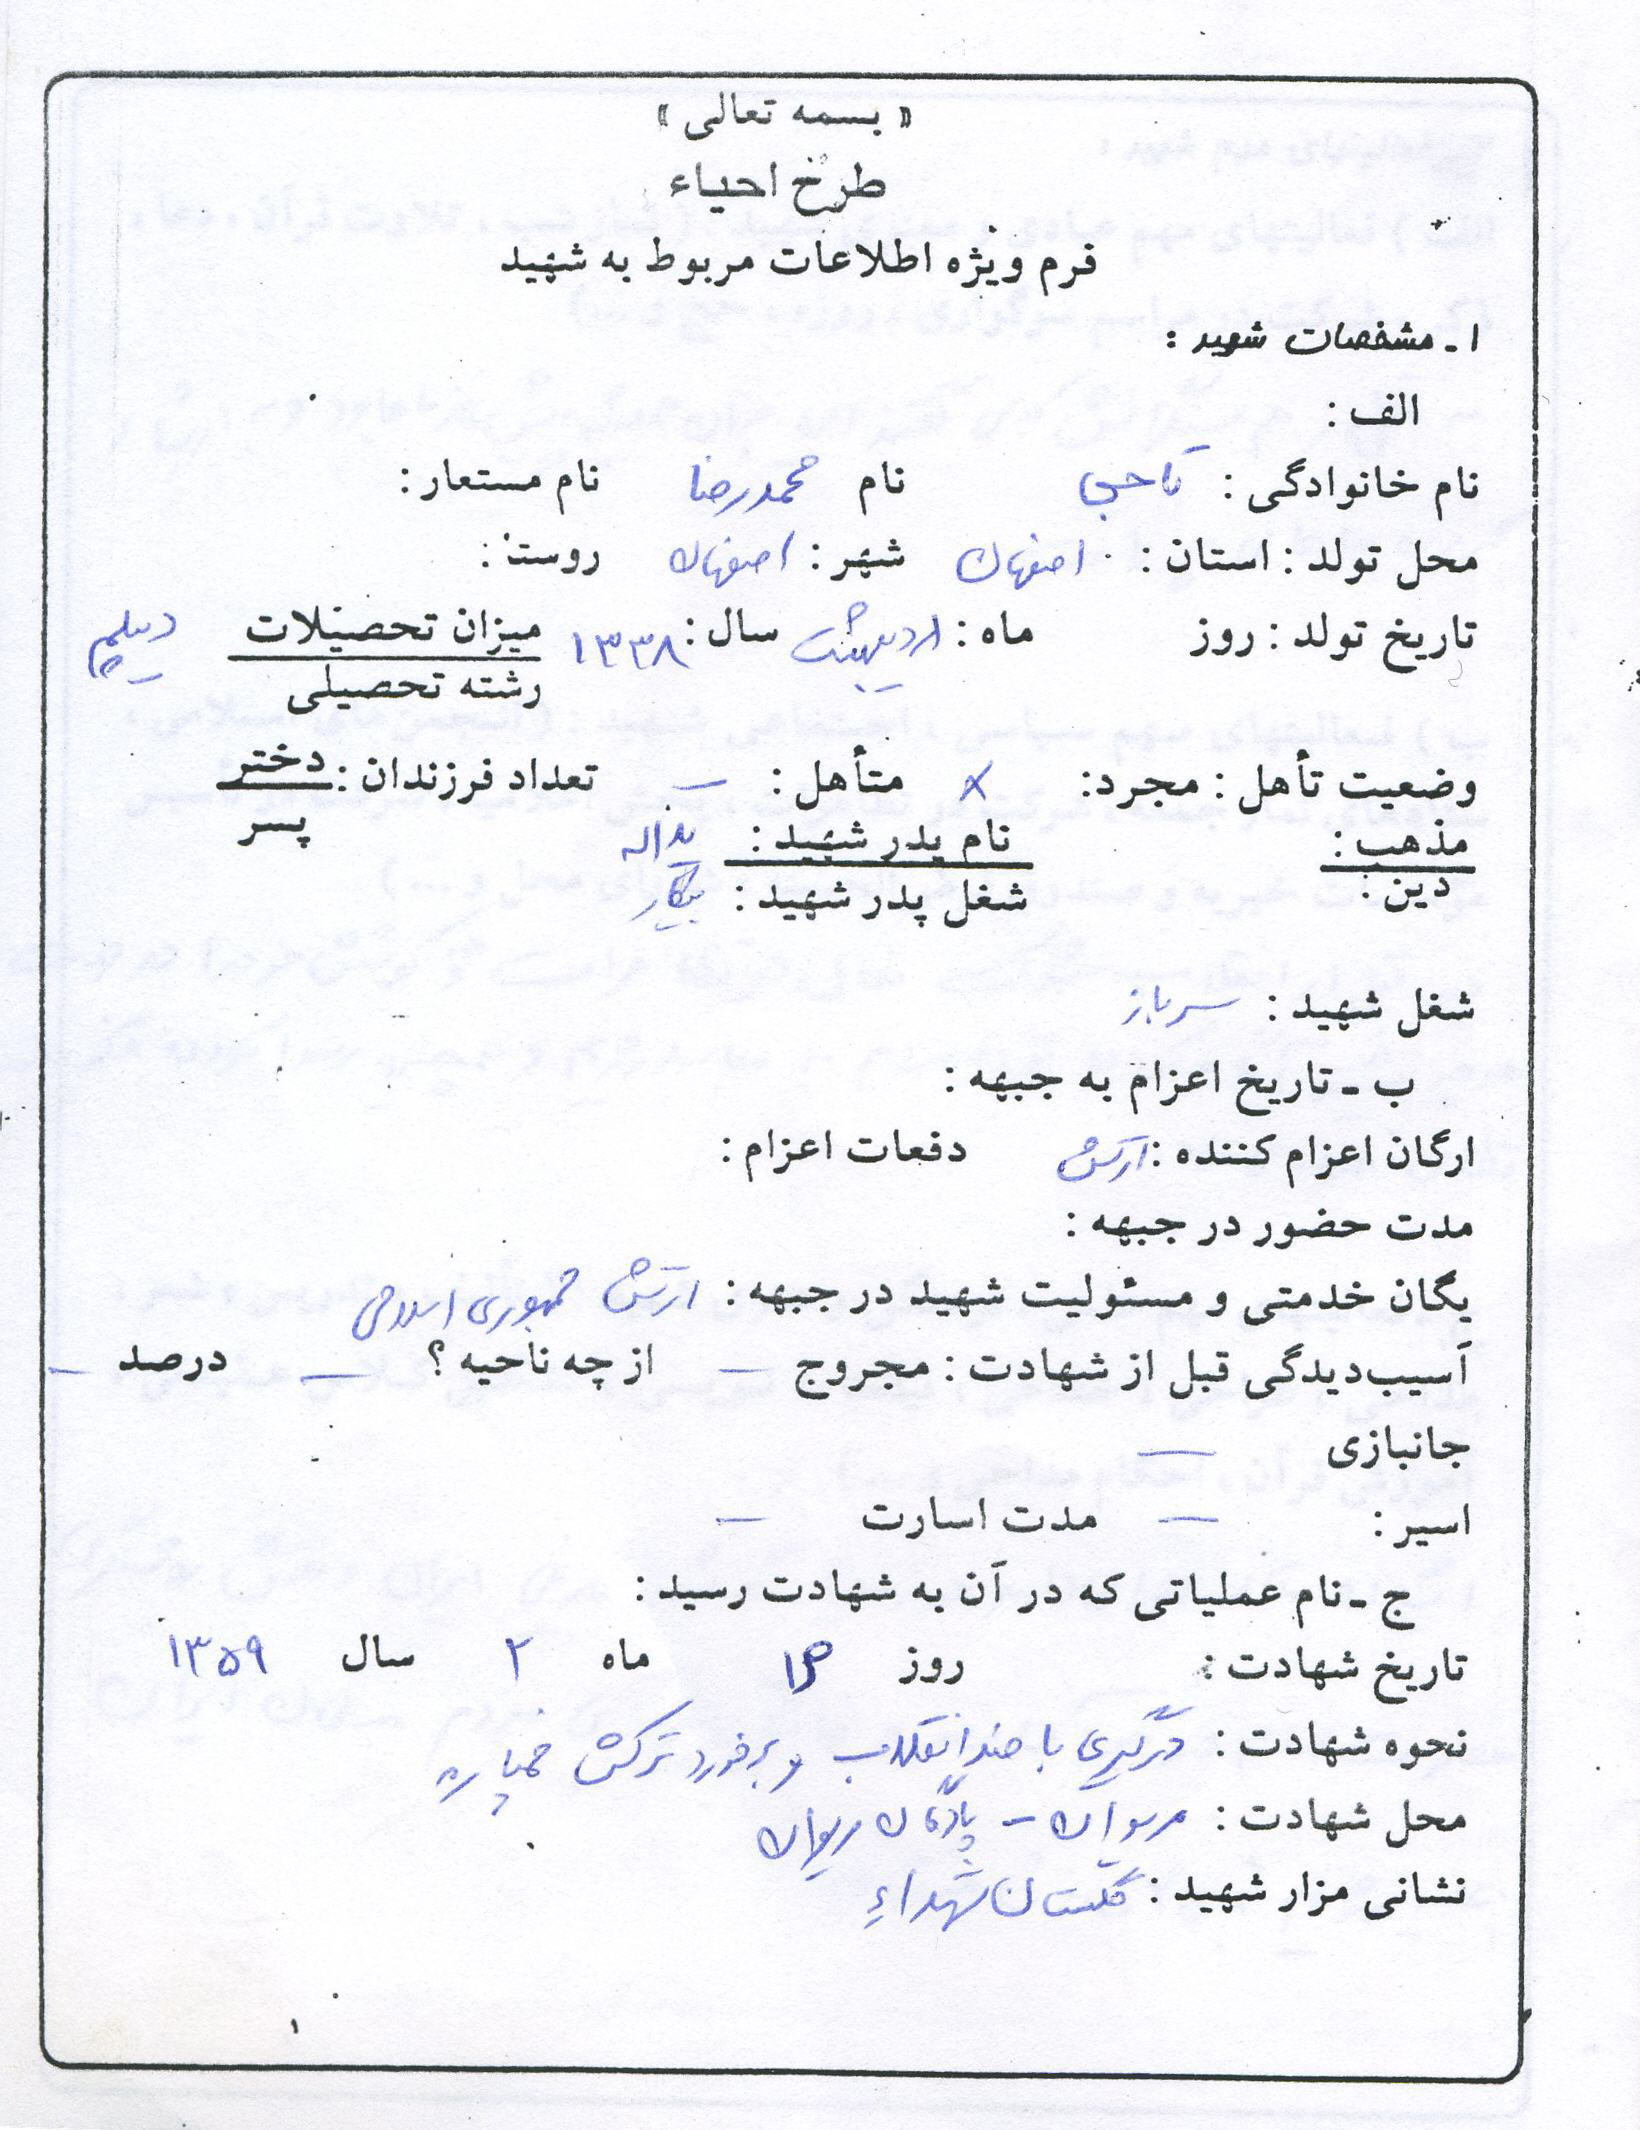 « بسمه تعالی »
طرح احیاء
فرم ویژه اطلاعات مربوط به شهید
۱ - مشخصات شهید :
الف :
نام خانوادگی : تاجی نام محمدرضا نام مستعار :
محل تولد : استان : اصفهان شهر : اصفهان روستا :
تاریخ تولد : روز ماه : اردیبهشت سال : ۱۳۳۸ میزان تحصیلات دیپلم
رشته تحصیلی
وضعیت تأهل : مجرد : × متأهل : – تعداد فرزندان : دختر
پسر
مذهب : نام پدر شهید : یداله
دین : شغل پدر شهید : بیکار
شغل شهید : سرباز
ب - تاریخ اعزام به جبهه :
ارگان اعزام کننده : ارتش دفعات اعزام :
مدت حضور در جبهه :
یگان خدمتی و مسئولیت شهید در جبهه : ارتش جمهوری اسلامی
آسیب‌دیدگی قبل از شهادت : مجروح – از چه ناحیه ؟ – درصد –
جانبازی –
اسیر : – مدت اسارت –
ج - نام عملیاتی که در آن به شهادت رسید :
تاریخ شهادت : روز ماه ۲ سال ۱۳۵۹
نحوه شهادت : درگیری با ضدانقلاب و برخورد ترکش خمپاره
محل شهادت : مریوان – پادگان مریوان
نشانی مزار شهید : گلستان شهداء
۱